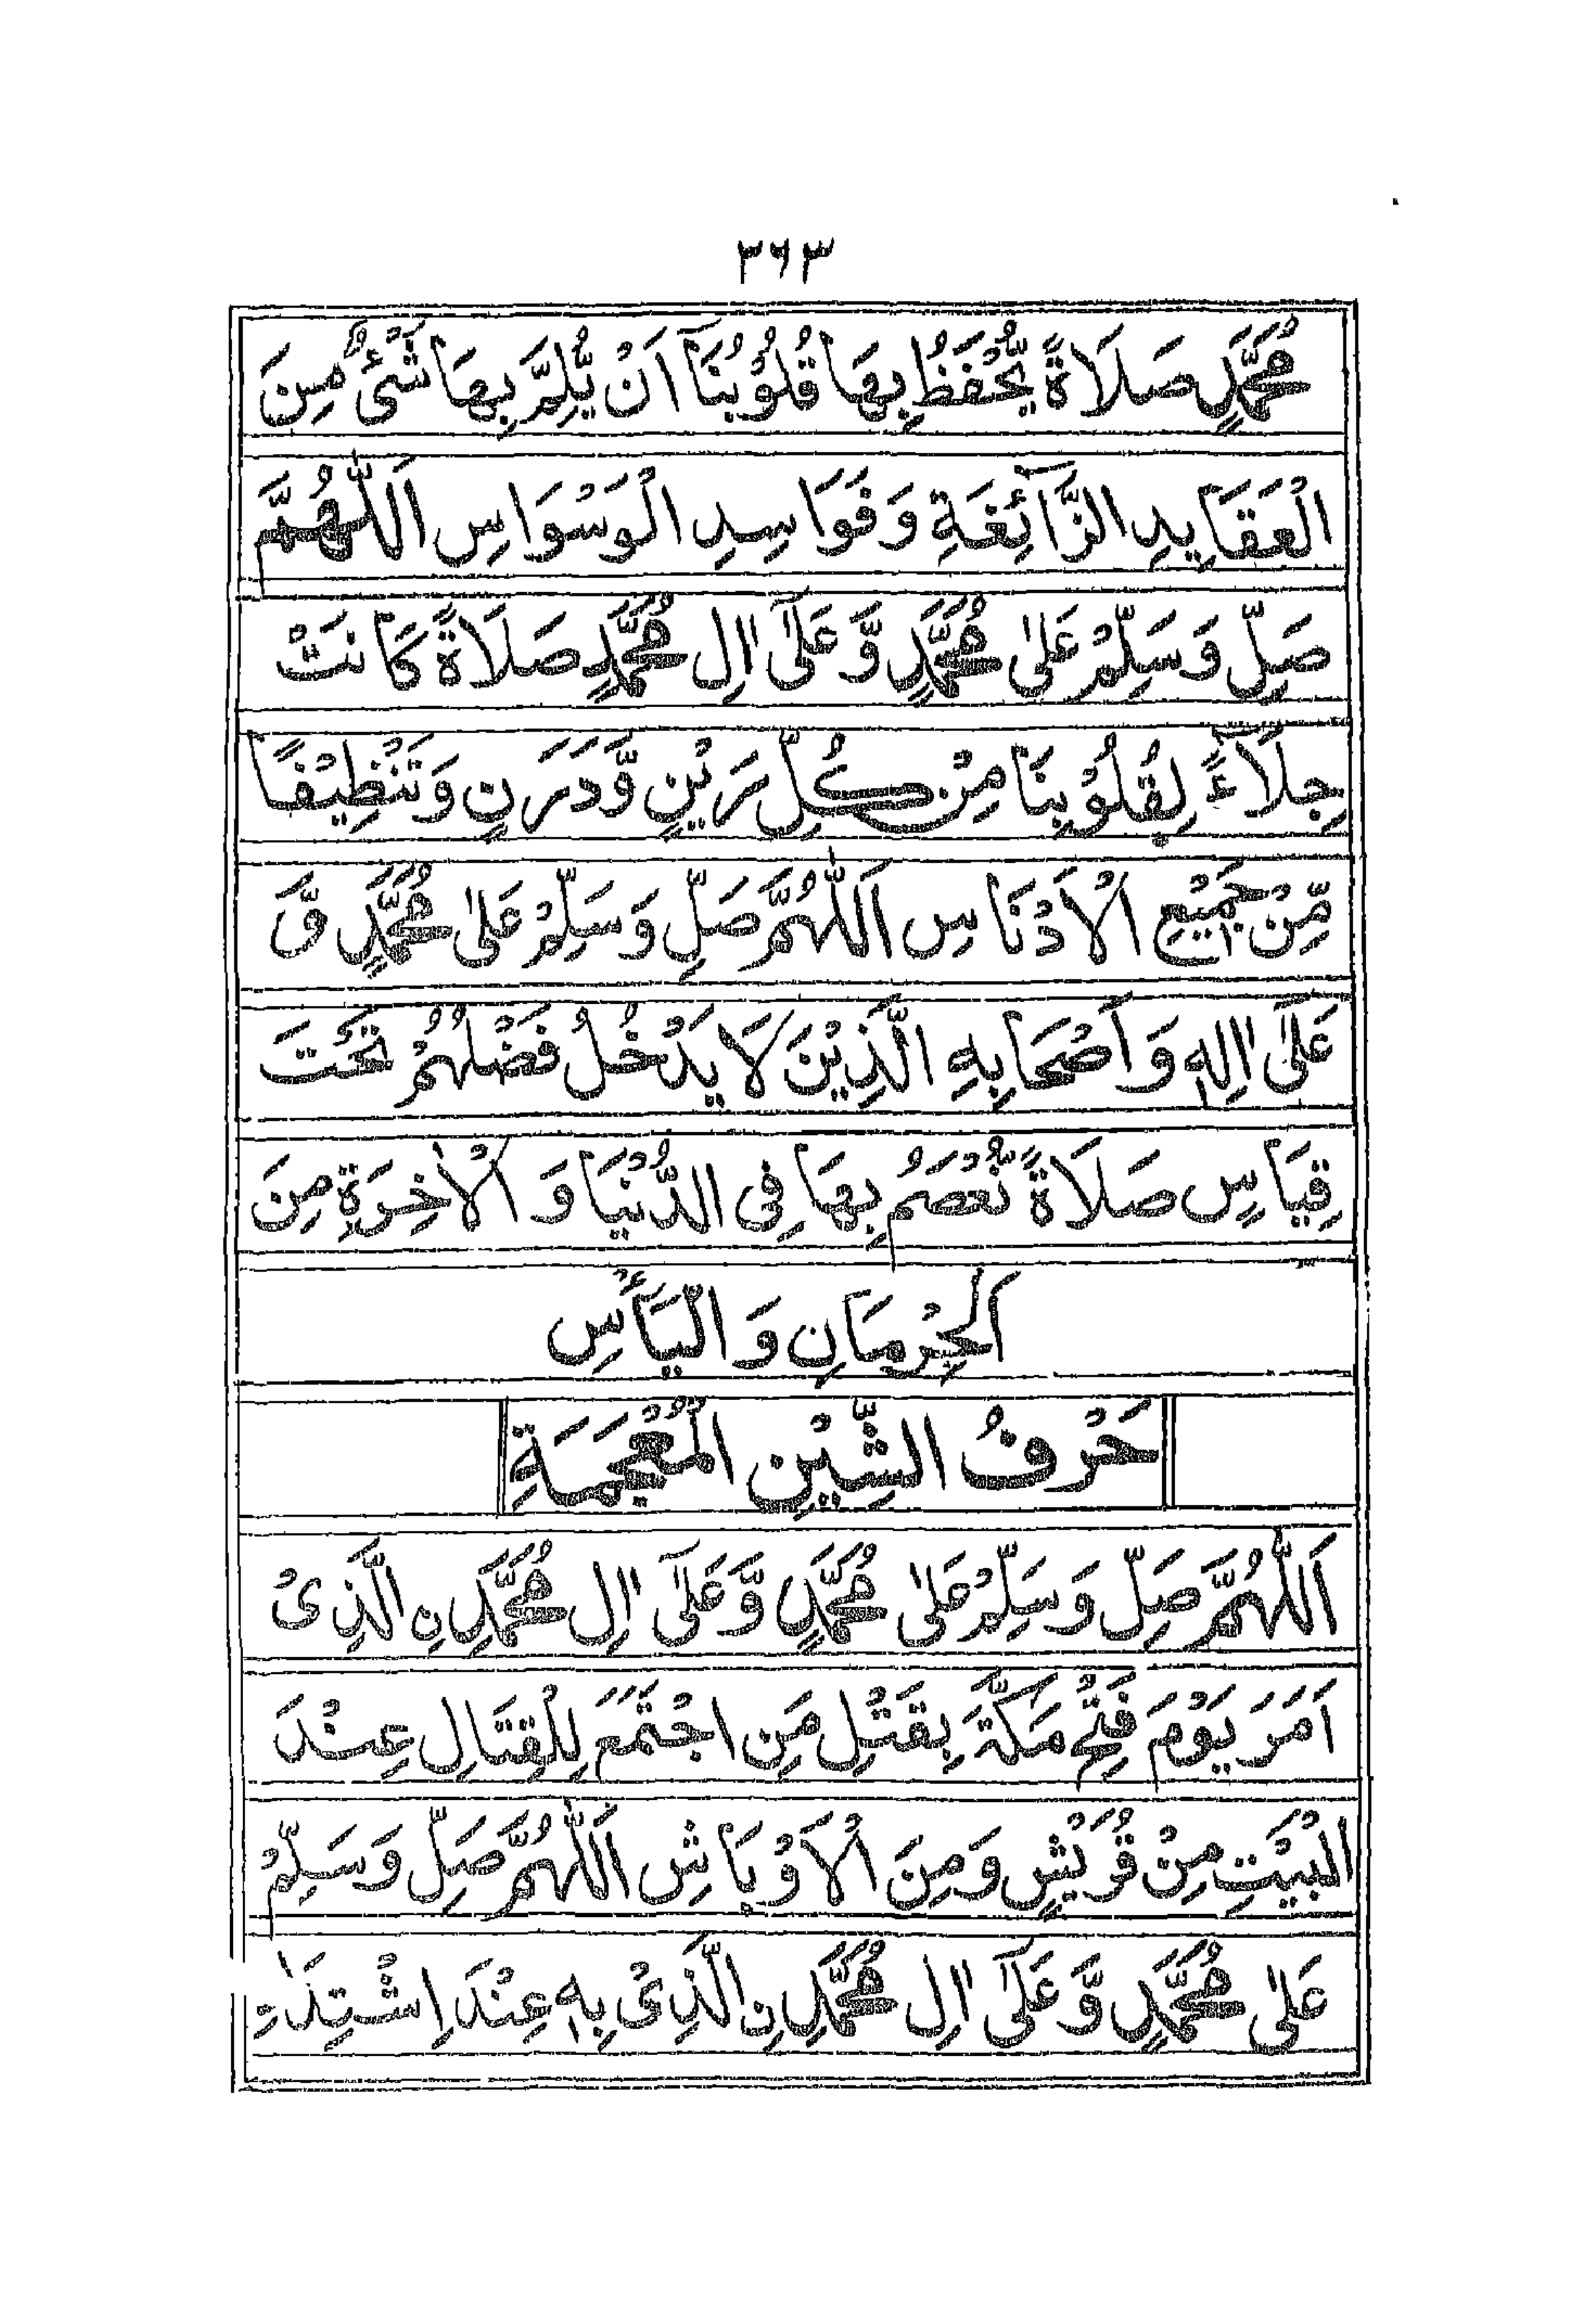 ٣٦٣
مُحَمَّدٍ صَلَاةً يُّحْفَظُ بِهَا قُلُوْبُنَآ اَنْ يُّلِمَّ بِهَا شَیْءٌ مِنَ
الْعَقَايِدِ الزَّآئِغَةِ وَفَوَاسِدِ الْوَسْوَاسِ اَللّٰهُمَّ
صَلِّ وَسَلِّمْ عَلٰى مُحَمَّدٍ وَّعَلٰٓى اٰلِ مُحَمَّدٍ صَلَاةً كَانَتْ
جِلَآءً لِقُلُوْبِنَا مِنْ كُلِّ رَيْنٍ وَّدَرَنٍ وَتَنْظِيْفًا
مِّنْ جَمِيْعِ الْاَدْنَاسِ اَللّٰهُمَّ صَلِّ وَسَلِّمْ عَلٰى مُحَمَّدٍ وَّ
عَلٰٓى اٰلِهٖ وَاَصْحَابِهِ الَّذِيْنَ لَا يَدْخُلُ فَضْلُهُمْ تَحْتَ
قِيَاسٍ صَلَاةً نُّعْصَمُ بِهَا فِی الدُّنْيَا وَالْاٰخِرَةِ مِنَ
اَلْحِرْمَانِ وَالْيَأْسِ
حَرْفُ الشِّيْنِ الْمُعْجَمَةِ
اَللّٰهُمَّ صَلِّ وَسَلِّمْ عَلٰى مُحَمَّدٍ وَّعَلٰٓى اٰلِ مُحَمَّدِنِ الَّذِیْ
اَمَرَ يَوْمَ فَتْحِ مَكَّةَ بِقَتْلِ مَنِ اجْتَمَعَ لِلْقِتَالِ عِنْدَ
الْبَيْتِ مِنْ قُرَيْشٍ وَمِنَ الْاَوْبَاشِ اَللّٰهُمَّ صَلِّ وَسَلِّمْ
عَلٰى مُحَمَّدٍ وَّعَلٰٓى اٰلِ مُحَمَّدِنِ الَّذِیْ بِهٖ عِنْدَ اِشْتِدَادِ